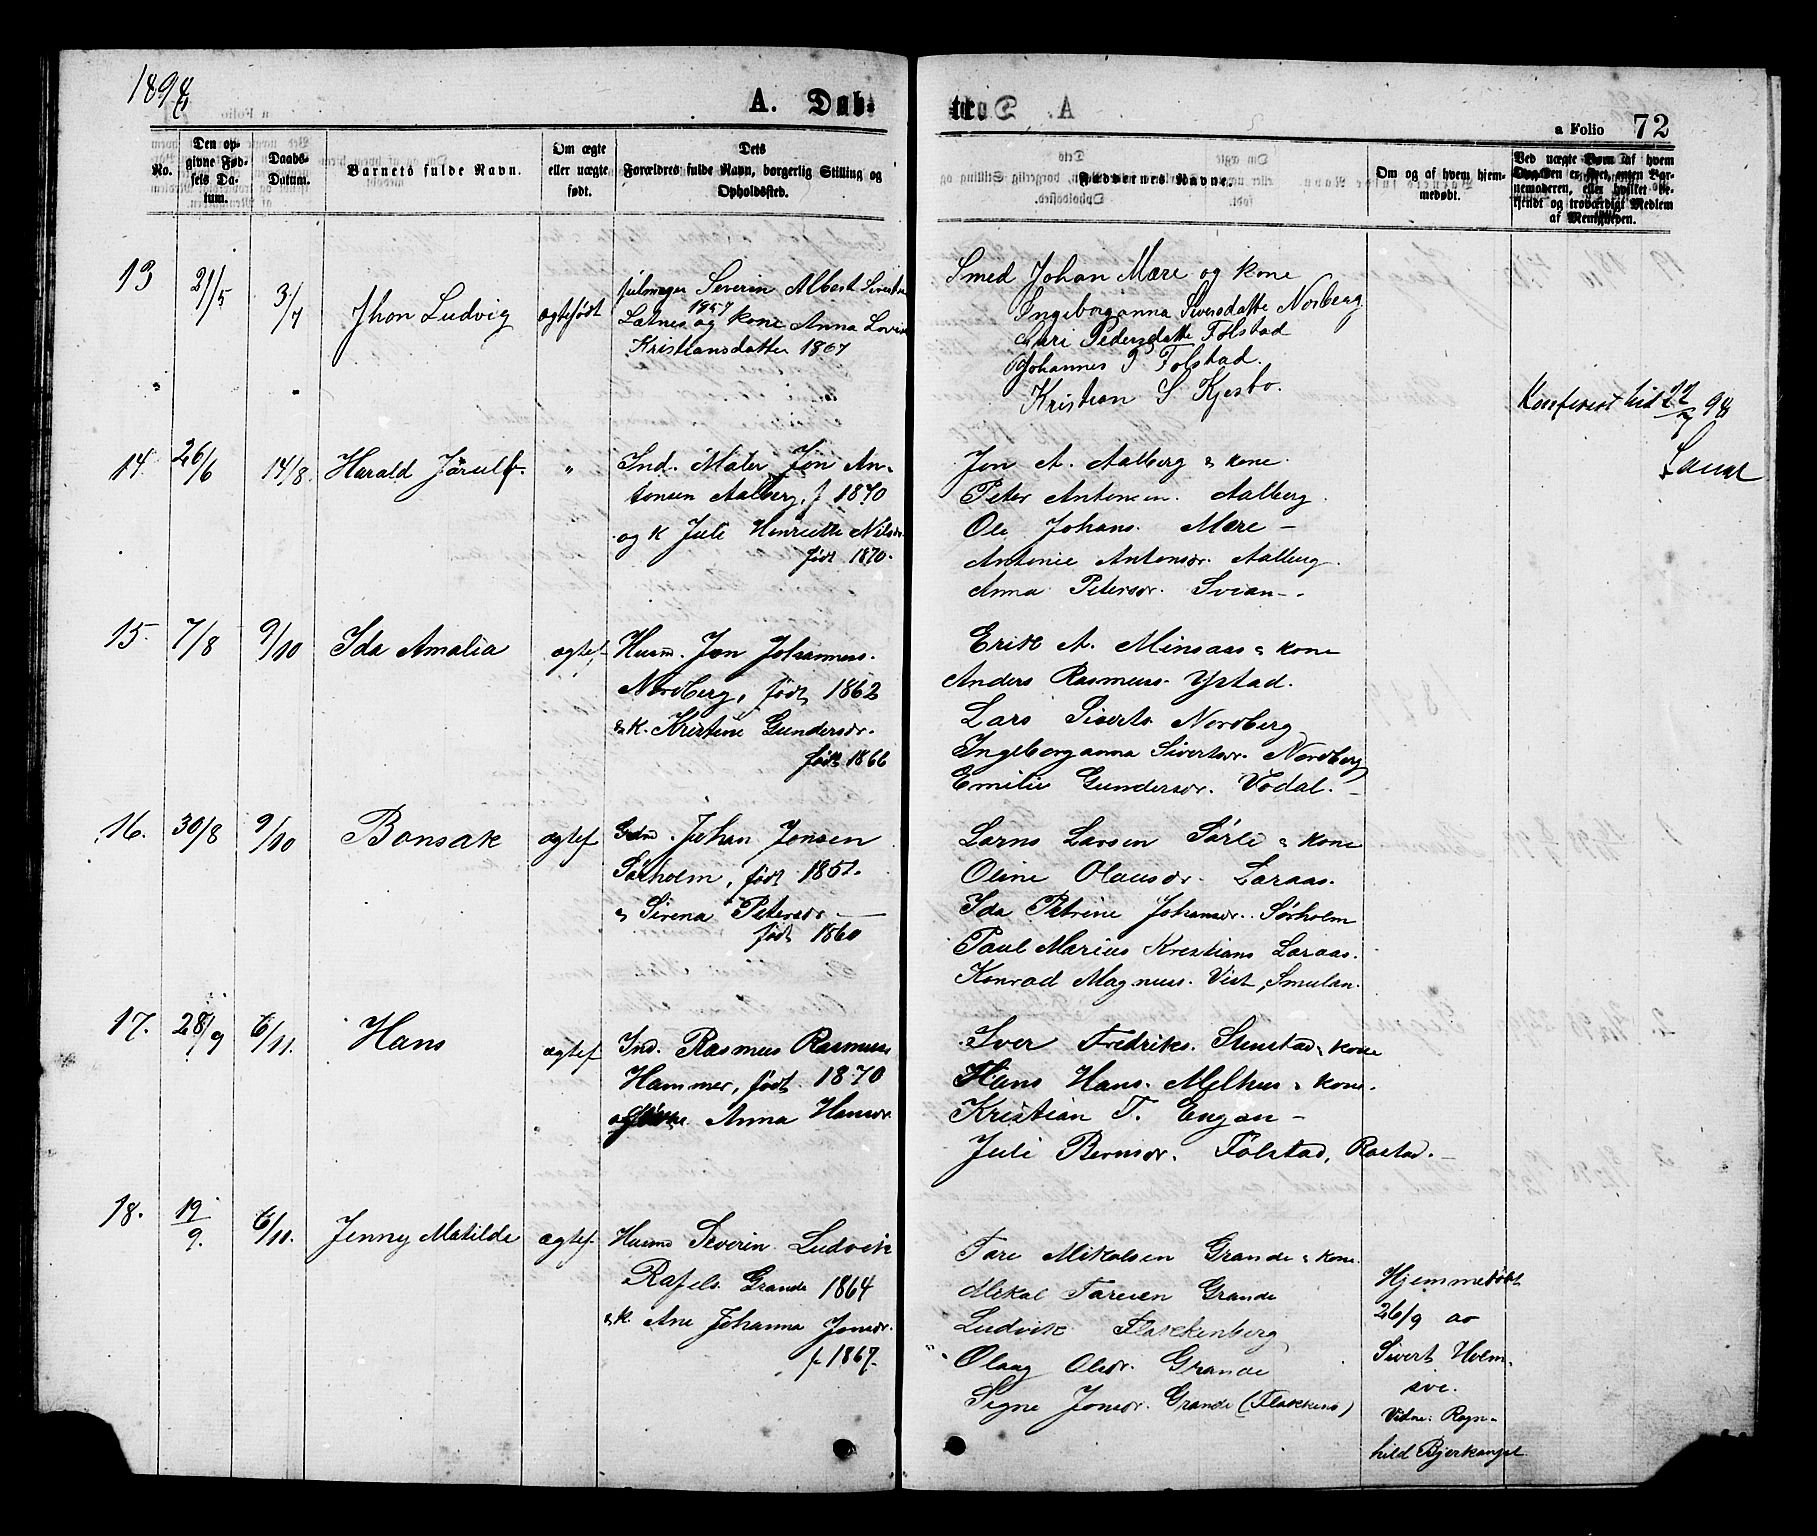 1898
A. Daab-
tr.
a Folio 72
No.
Den op-
givne Fød-
sels Da-
tum.
Daabs-
Datum.
Barnets fulde Navn.
Om ægte
eller uægte
født.
Dets
Forældres fulde Navn, borgerlig Stilling og
Opholdssted.
Faddernes Navne.
Om og af hvem hjem-
medøbt.
Ved uægte Børn af hvem
Opgaven er skeet, enten Bar-
nemoderen, eller hvilket be-
kjendt og troværdigt Medlem
af Menigheden.
13
21/5
3/7
Jhon Ludvig
ægtefødt
Severin Albert
1857
og kone Anna
Kristiansdatter 1867
Smed Johan Mære og kone
Ingeborganna Siversdatte Norberg
Pedersdatte Følstad
Johannes P Følstad.
Kristian S Kjesbo.
Konferert hid 22/7 98
14.
26/6
14/8.
Harald Jørulf.
"
Ind. Maler Jon An-
tonsen Aalberg, f 1870
og k Juli Henriette Nilsdr.
født 1870.
Jon A. Aalberg & kone.
Peter Antonsen. Aalberg.
Ole Johans. Mære –
Antonie Antonsdr. Aalberg.
Anna Petersdr. Svian –.
15.
7/8
9/10
Ida Amalia
ægtef.
Husm. Jon Johanness.
Nordberg, født 1862
& k. Kristine Gundersdr.
født 1866
Erik A. Minsaas & kone
Anders Rasmuss. Ystad.
Lars Siverts Nordberg
Ingeborganna Sivertsdr. Nordberg
Emilie Gundersdr. Vodal. –
16.
30/8
9/10
Bonsak
ægtef
Grdm. Johan Jonsen
Sørholm, født 1851.
& Sirena Petersdr –
født 1860
Larns Larsen Sørli & kone
Oline Olausdr. Laraas.
Ida Petrine Johansdr. Sørholm
Paul Marius Krestians Laraas.
Konrad Magnuss. Vist, Smulan.
17.
28/9
6/11.
Hans
ægtef
Ind. Rasmus Rasmuss
Hammer, født. 1870
Anna Hansdr.
Iver Fredriks. Stenstad & kone
Hans Hans. Melhus & kone.
Kristian T. Engan –
Juli Bernsdr. Følstad, Rostad. –
18.
19/9.
6/11.
Jenny Matilde
ægtef.
Husmd Severin Ludvik
Rafels. Grande 1864
& k. Ane Johanna Jonsdr.
f 1867.
Tore Mikalsen Grande & kone.
Mikal Toresen Grande
Ludvik Flakkenberg
Olaug Olsdr. Grande
Signe Jonsdr. Grande (Flakkens)
Hjemmedøbt
26/9 av
Sivert Holm-
sve.
Vidne: Ragn-
hild Bjerkanpl.